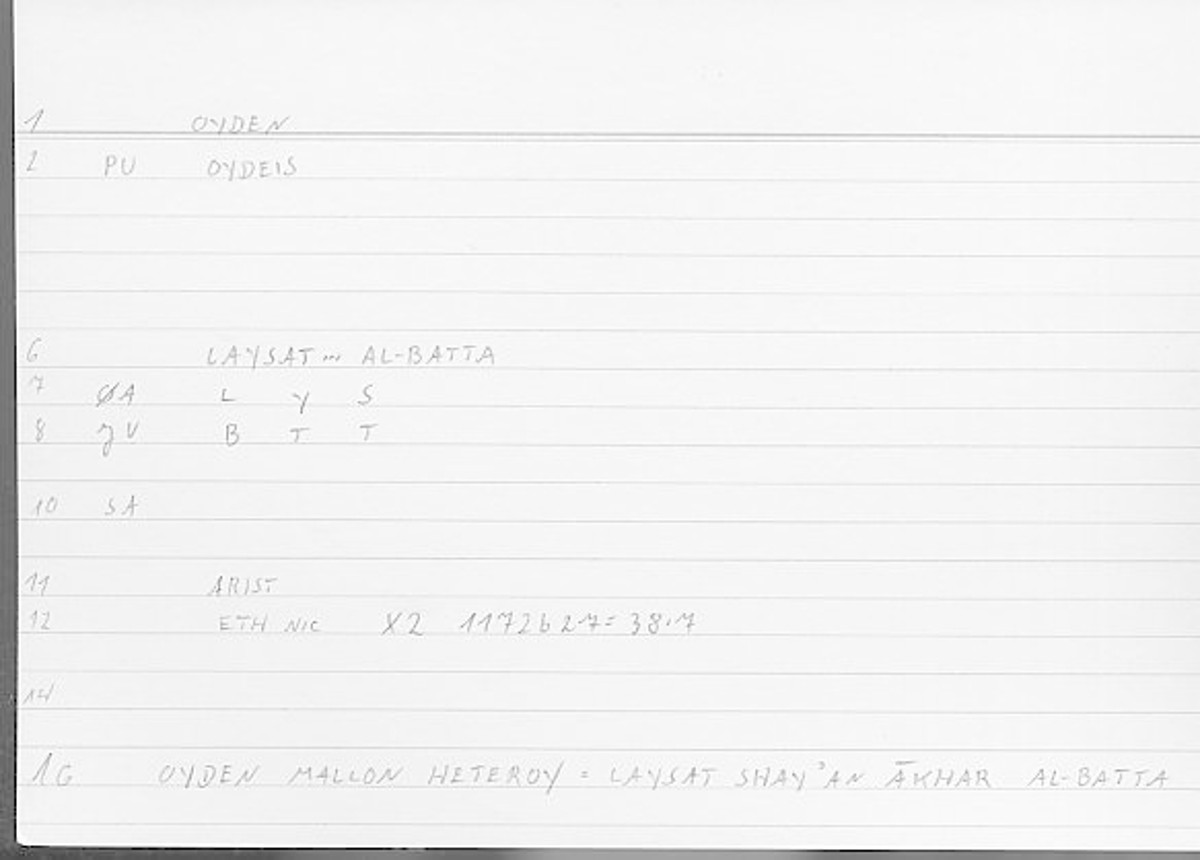 1 OYDEN
2 PU OYDEIS
6 LAYSAT ... AL-BATTA
7 ØA L Y S
8 JV B T T
10 SA
11 ARIST
12 ETH NIC X2 1172b27=38.7
14
16 OYDEN MALLON HETEROY = LAYSAT SHAY'AN ĀKHAR AL-BATTA